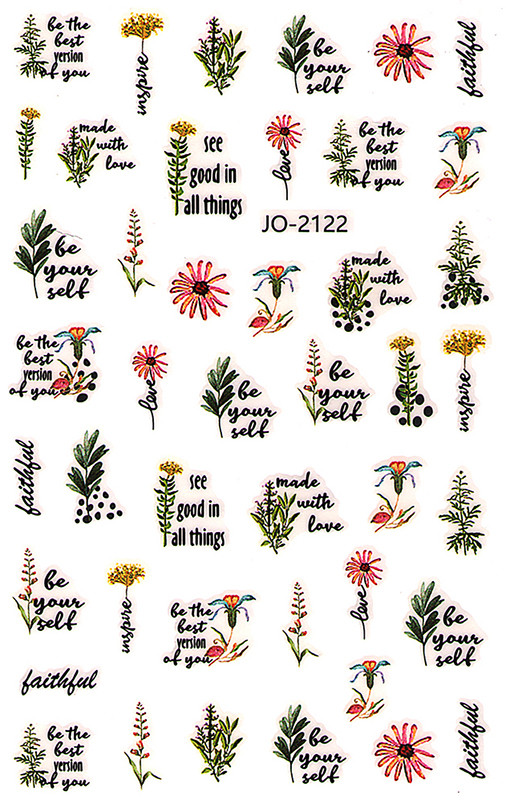 be the
best
version
of you
inspire
be
your
self
faithful
made
with
love
see
good in
all things
love
be the
best
version
of you
JO-2122
be
your
self
made
with
love
be the
best
version
of you
love
be
your
self
be
your
self
inspire
faithful
see
good in
all things
made
with
love
be
your
self
inspire
be the
best
version
of you
love
be
your
self
faithful
be the
best
version
of you
be
your
self
faithful